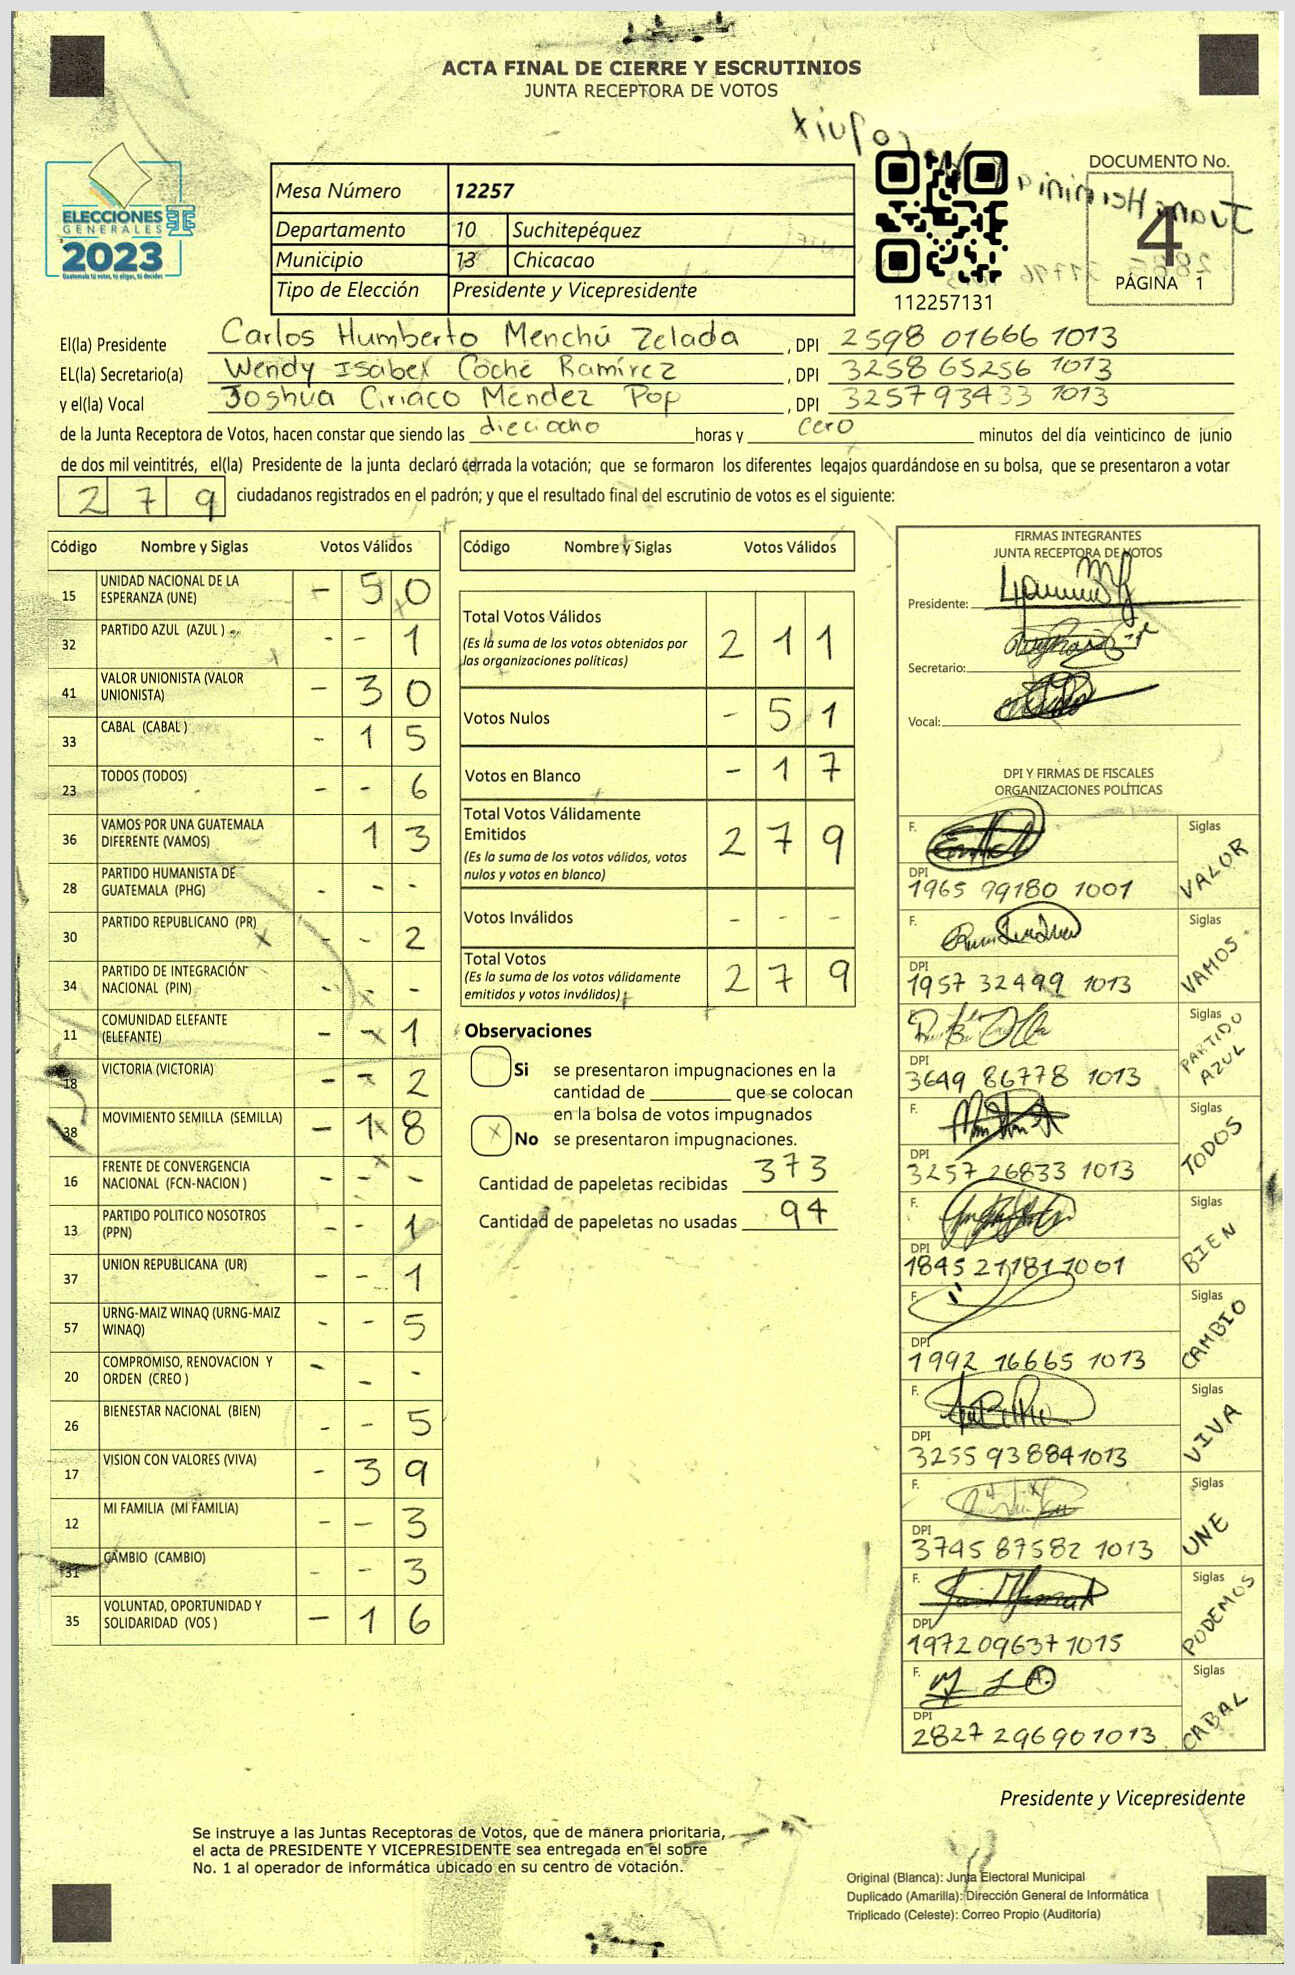 ACTA FINAL DE CIERRE Y ESCRUTINIOS
JUNTA RECEPTORA DE VOTOS
ELECCIONES
GENERALES
2023
Guatemala tú votas, tú eliges, tú decides
Mesa Número 12257
Departamento 10 Suchitepéquez
Municipio 13 Chicacao
Tipo de Elección Presidente y Vicepresidente
112257131
DOCUMENTO No.
4
PÁGINA 1
El(la) Presidente Carlos Humberto Menchú Zelada, DPI 2598 01666 1013
EL(la) Secretario(a) Wendy Isabel Coché Ramírez, DPI 3258 65256 1013
y el(la) Vocal Joshua Ciriaco Méndez Pop, DPI 3257 93433 1013
de la Junta Receptora de Votos, hacen constar que siendo las dieciocho horas y cero minutos del día veinticinco de junio
de dos mil veintitrés, el(la) Presidente de la junta declaró cerrada la votación; que se formaron los diferentes legajos guardándose en su bolsa, que se presentaron a votar
279 ciudadanos registrados en el padrón; y que el resultado final del escrutinio de votos es el siguiente:
Código Nombre y Siglas Votos Válidos
15 UNIDAD NACIONAL DE LA ESPERANZA (UNE) - 5 0
32 PARTIDO AZUL (AZUL ) - - 1
41 VALOR UNIONISTA (VALOR UNIONISTA) - 3 0
33 CABAL (CABAL ) - 1 5
23 TODOS (TODOS) - - 6
36 VAMOS POR UNA GUATEMALA DIFERENTE (VAMOS) 1 3
28 PARTIDO HUMANISTA DE GUATEMALA (PHG) - - -
30 PARTIDO REPUBLICANO (PR) - - 2
34 PARTIDO DE INTEGRACIÓN NACIONAL (PIN) - - -
11 COMUNIDAD ELEFANTE (ELEFANTE) - - 1
18 VICTORIA (VICTORIA) - - 2
38 MOVIMIENTO SEMILLA (SEMILLA) - 1 8
16 FRENTE DE CONVERGENCIA NACIONAL (FCN-NACION ) - - -
13 PARTIDO POLITICO NOSOTROS (PPN) - - 1
37 UNION REPUBLICANA (UR) - - 1
57 URNG-MAIZ WINAQ (URNG-MAIZ WINAQ) - - 5
20 COMPROMISO, RENOVACION Y ORDEN (CREO ) - - -
26 BIENESTAR NACIONAL (BIEN) - - 5
17 VISION CON VALORES (VIVA) - 3 9
12 MI FAMILIA (MI FAMILIA) - - 3
31 CAMBIO (CAMBIO) - - 3
35 VOLUNTAD, OPORTUNIDAD Y SOLIDARIDAD (VOS ) - 1 6
Código Nombre y Siglas Votos Válidos
Total Votos Válidos 2 1 1
(Es la suma de los votos obtenidos por
las organizaciones políticas)
Votos Nulos - 5 1
Votos en Blanco - 1 7
Total Votos Válidamente
Emitidos 2 7 9
(Es la suma de los votos válidos, votos
nulos y votos en blanco)
Votos Inválidos - - -
Total Votos 2 7 9
(Es la suma de los votos válidamente
emitidos y votos inválidos)
Observaciones
Si se presentaron impugnaciones en la
cantidad de ________ que se colocan
en la bolsa de votos impugnados
X No se presentaron impugnaciones.
Cantidad de papeletas recibidas 373
Cantidad de papeletas no usadas 94
FIRMAS INTEGRANTES
JUNTA RECEPTORA DE VOTOS
Presidente:
Secretario:
Vocal:
DPI Y FIRMAS DE FISCALES
ORGANIZACIONES POLÍTICAS
F. Siglas VALOR
DPI 1965 99180 1001
F. Siglas VAMOS
DPI 1957 32499 1013
F. Siglas PARTIDO AZUL
DPI 3649 86778 1013
F. Siglas TODOS
DPI 3257 26833 1013
F. Siglas BIEN
DPI 1845 21181 1001
F. Siglas CAMBIO
DPI 1992 16665 1013
F. Siglas VIVA
DPI 3255 93884 1013
F. Siglas UNE
DPI 3745 87582 1013
F. Siglas PODEMOS
DPI 1972 09637 1015
F. Siglas CABAL
DPI 2827 29690 1013
Presidente y Vicepresidente
Se instruye a las Juntas Receptoras de Votos, que de manera prioritaria,
el acta de PRESIDENTE Y VICEPRESIDENTE sea entregada en el sobre
No. 1 al operador de informática ubicado en su centro de votación.
Original (Blanca): Junta Electoral Municipal
Duplicado (Amarilla): Dirección General de Informática
Triplicado (Celeste): Correo Propio (Auditoría)